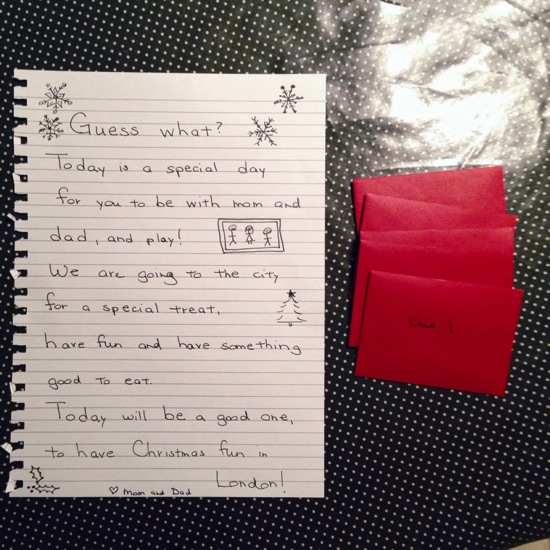 Guess what?
Today is a special day
for you to be with mom and
dad, and play!
We are going to the city
for a special treat,
have fun and have something
good to eat.
Today will be a good one,
to have Christmas fun in
London!
♡ Mom and Dad
Clue 1